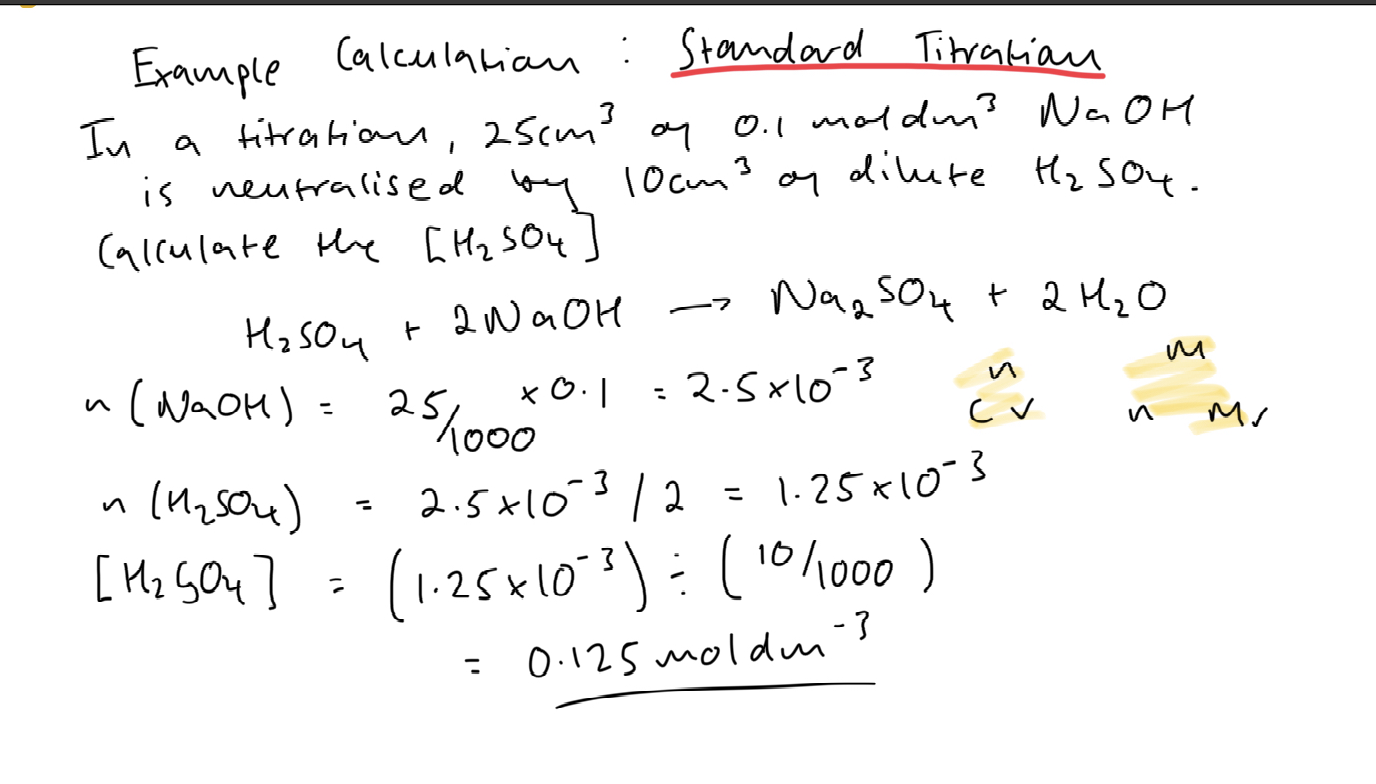 Example Calculation : Standard Titration
In a titration, 25cm³ of 0.1 moldm³ NaOH
is neutralised by 10cm³ of dilute H₂SO₄.
Calculate the [H₂SO₄]
H₂SO₄ + 2NaOH → Na₂SO₄ + 2H₂O
n (NaOH) = 25/1000 × 0.1 = 2.5×10⁻³
n
C V
m
n Mr
n (H₂SO₄) = 2.5×10⁻³ / 2 = 1.25×10⁻³
[H₂SO₄] = (1.25×10⁻³) ÷ (10/1000)
= 0.125 moldm⁻³